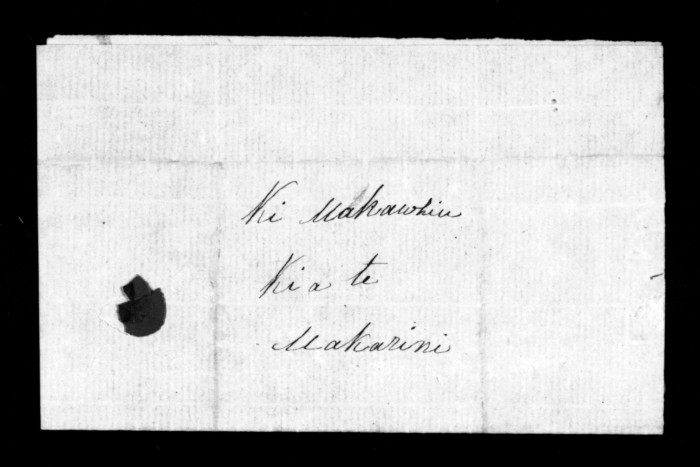 Ki Makawhiu
Kia te
Makarini